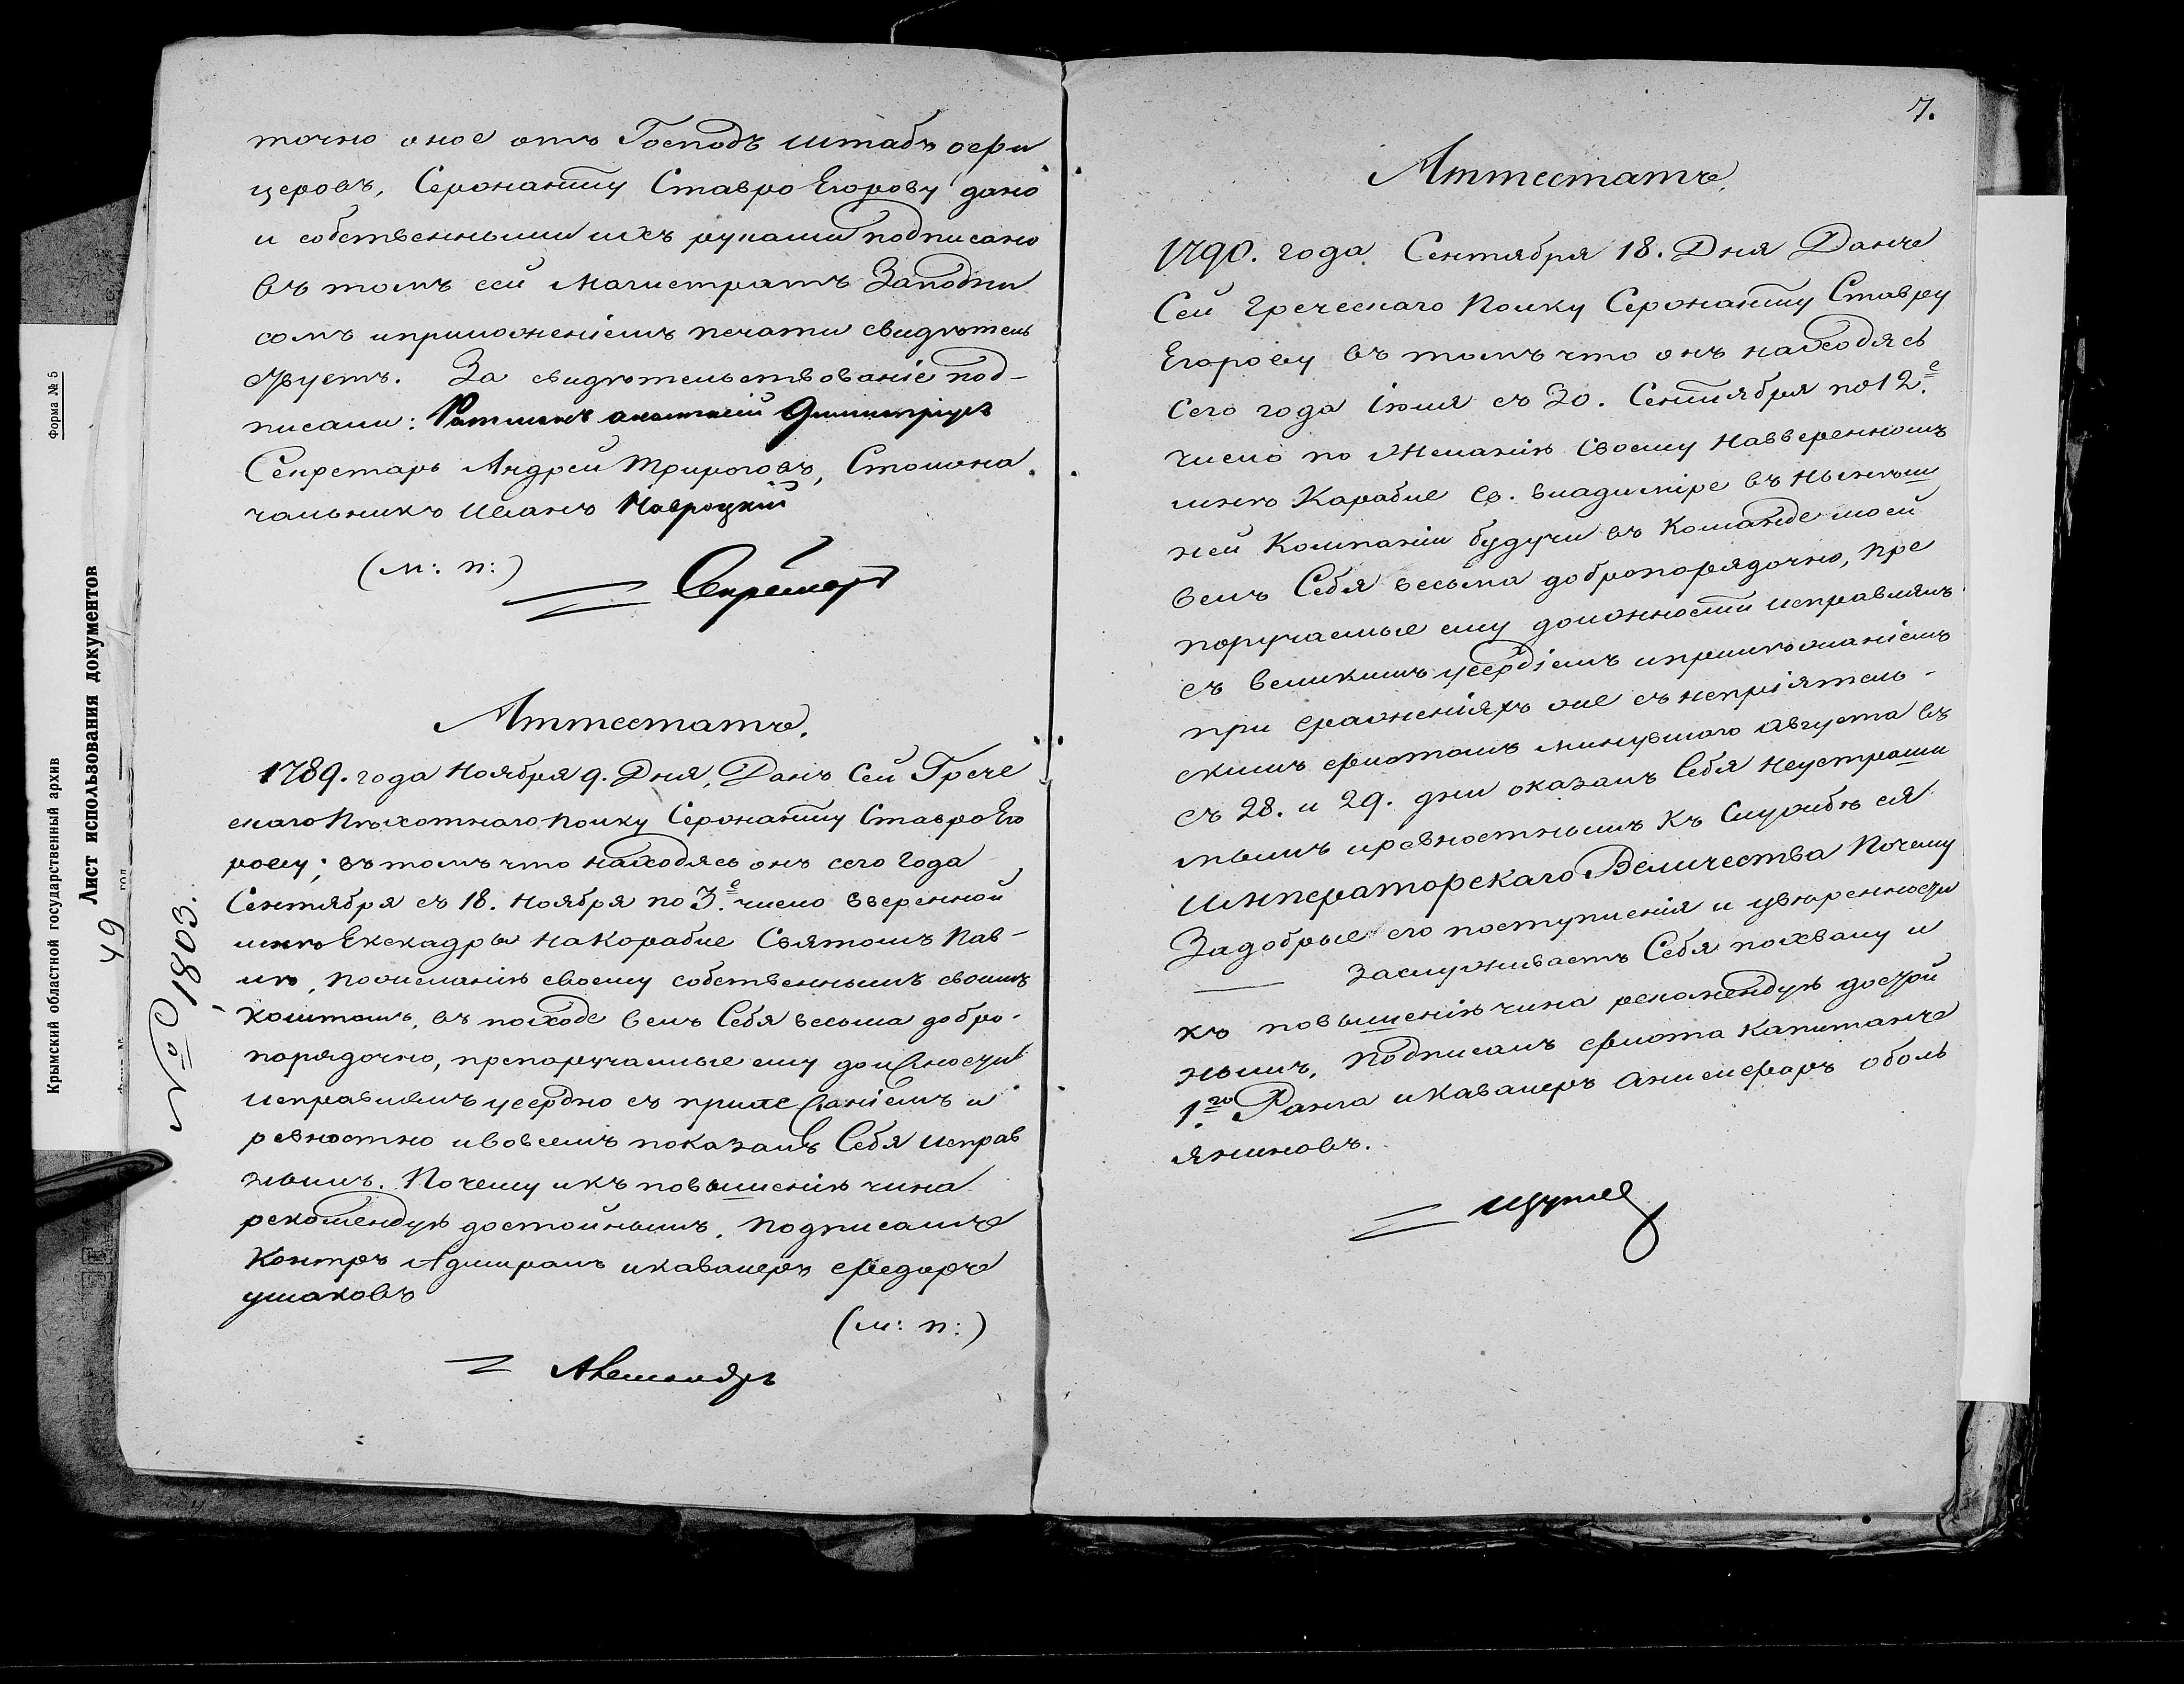 точно оное отъ Господъ штабъ офи
церовъ, Сержанту Ставро Егорову дано
и собственными ихъ руками подписано
въ томъ сей Магистратъ Заподпи
сомъ иприложеніемъ печати свидѣтель
ствуетъ. За свидѣтельствованіе под-
писали: Ратманъ
Секретарь Андрей Трироговъ, Столона
чальникъ Иванъ Навроцкій
(м: п:)
Секретарь
Аттестатъ.
1789. года Ноября 9. Дня, Данъ Сей Грече
скаго Пѣхотнаго Полку Сержанту Ставро Его
рову; въ томъ что находясь онъ сего Года
Сентября съ 18. Ноября по 3.е число вверенной
мнѣ Ексадры на Корабле Святомъ Пав-
лѣ, пожеланію своему собственнымъ своимъ
коштомъ, въ походе велъ Себя весьма добро-
порядочно, препоручаемые ему должности
исправлялъ усердно съ прилежаніемъ и
ревностно ивовсемъ показалъ Себя исправ
нымъ. Почему икъ повышенію чина
рекомендую достойнымъ. Подписалъ
Контръ Адмиралъ икавалеръ Федоръ
Ушаковъ
(м: п:)
№ 1803.
Крымский областной государственный архив
Форма № 5
Лист использования документов
49
год
7.
Аттестатъ.
1790. года Сентября 18. Дня Данъ
Сей Греческаго Полку Сержанту Ставру
Егорову въ томъ что онъ находясь
Сего года Іюня съ 20. Сентября по 12.е
число по Желанію Своему Навверенномъ
мнѣ Карабле Св. Владиміре въ Нынѣш
ней Компаніи будучи въ Команде моей
велъ Себя весьма добропорядочно, пре
поручаемые ему должности исправлялъ
съ великимъ усердіемъ иприлѣжаніемъ
при сраженіяхъ же съ непріятель-
скимъ флотомъ минувшаго Августа въ
съ 28. и 29. дни оказалъ Себя Неустраши
мымъ иревностнымъ Къ Службѣ ея
Императорскаго Величества Почему
Задобрые его поступленія и
заслуживаетъ Себя похвалу и
къ повышенію чина рекомендую достой
нымъ, Подписалъ флота Капитанъ
1.го Ранга икавалеръ Анисифаръ Оболь
яниновъ.